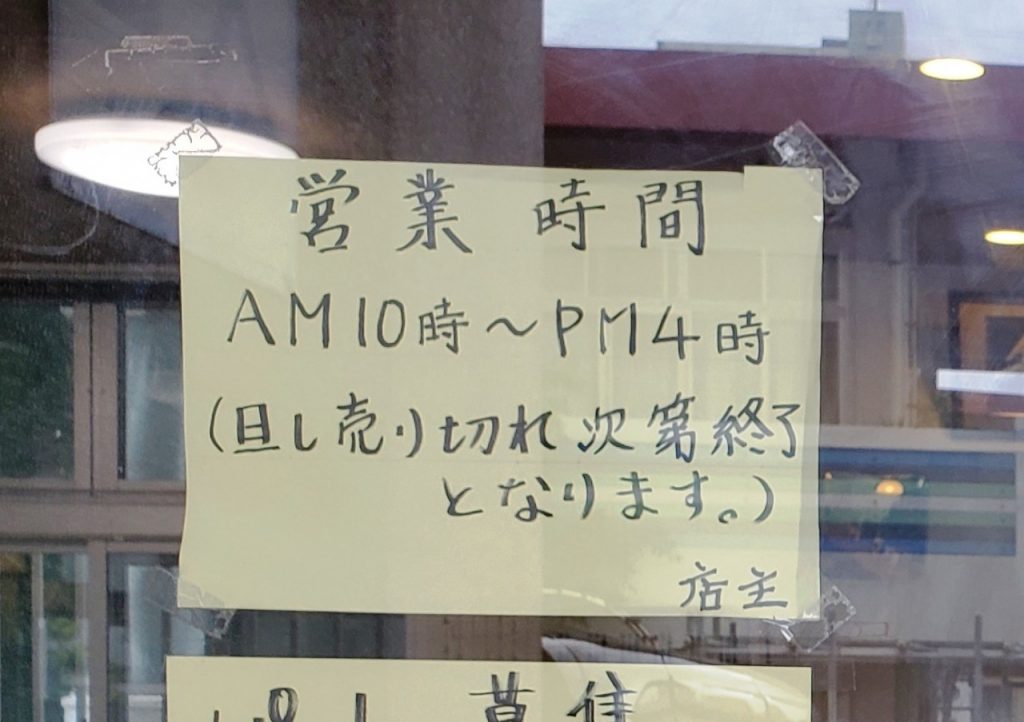 営業時間
AM10時～PM4時
(旦し売り切れ次第終了
となります。)
店主